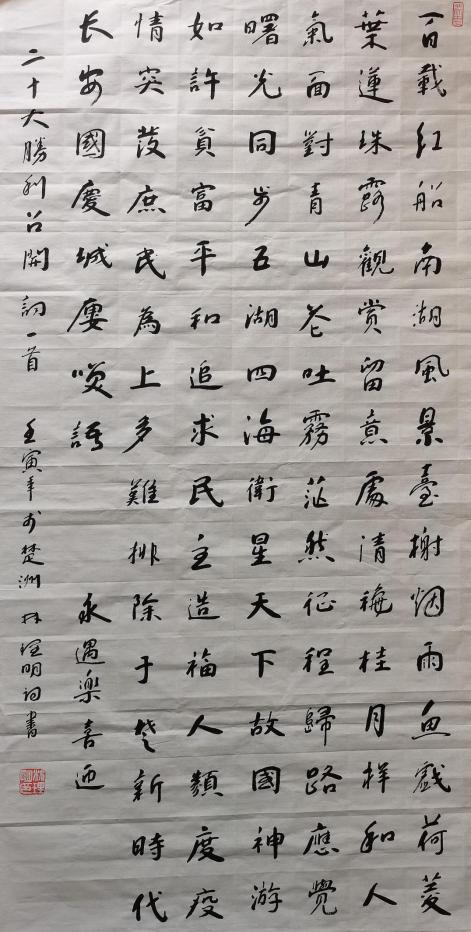 百載紅船南湖風景臺榭烟雨魚戲荷菱
葉蓮珠露觀賞留意處清梅桂月祥和人
氣面對青山苍吐霧茫然征程歸路應覺
曙光同步五湖四海衛星天下故國神游
如許貧富平和追求民主造福人類度疫
情突發庶民為上多難排除于楚新時代
长安國慶城廔喚語 永遇樂喜迎
二十大勝利召開詞一首 壬寅年於楚洲林理明詞書